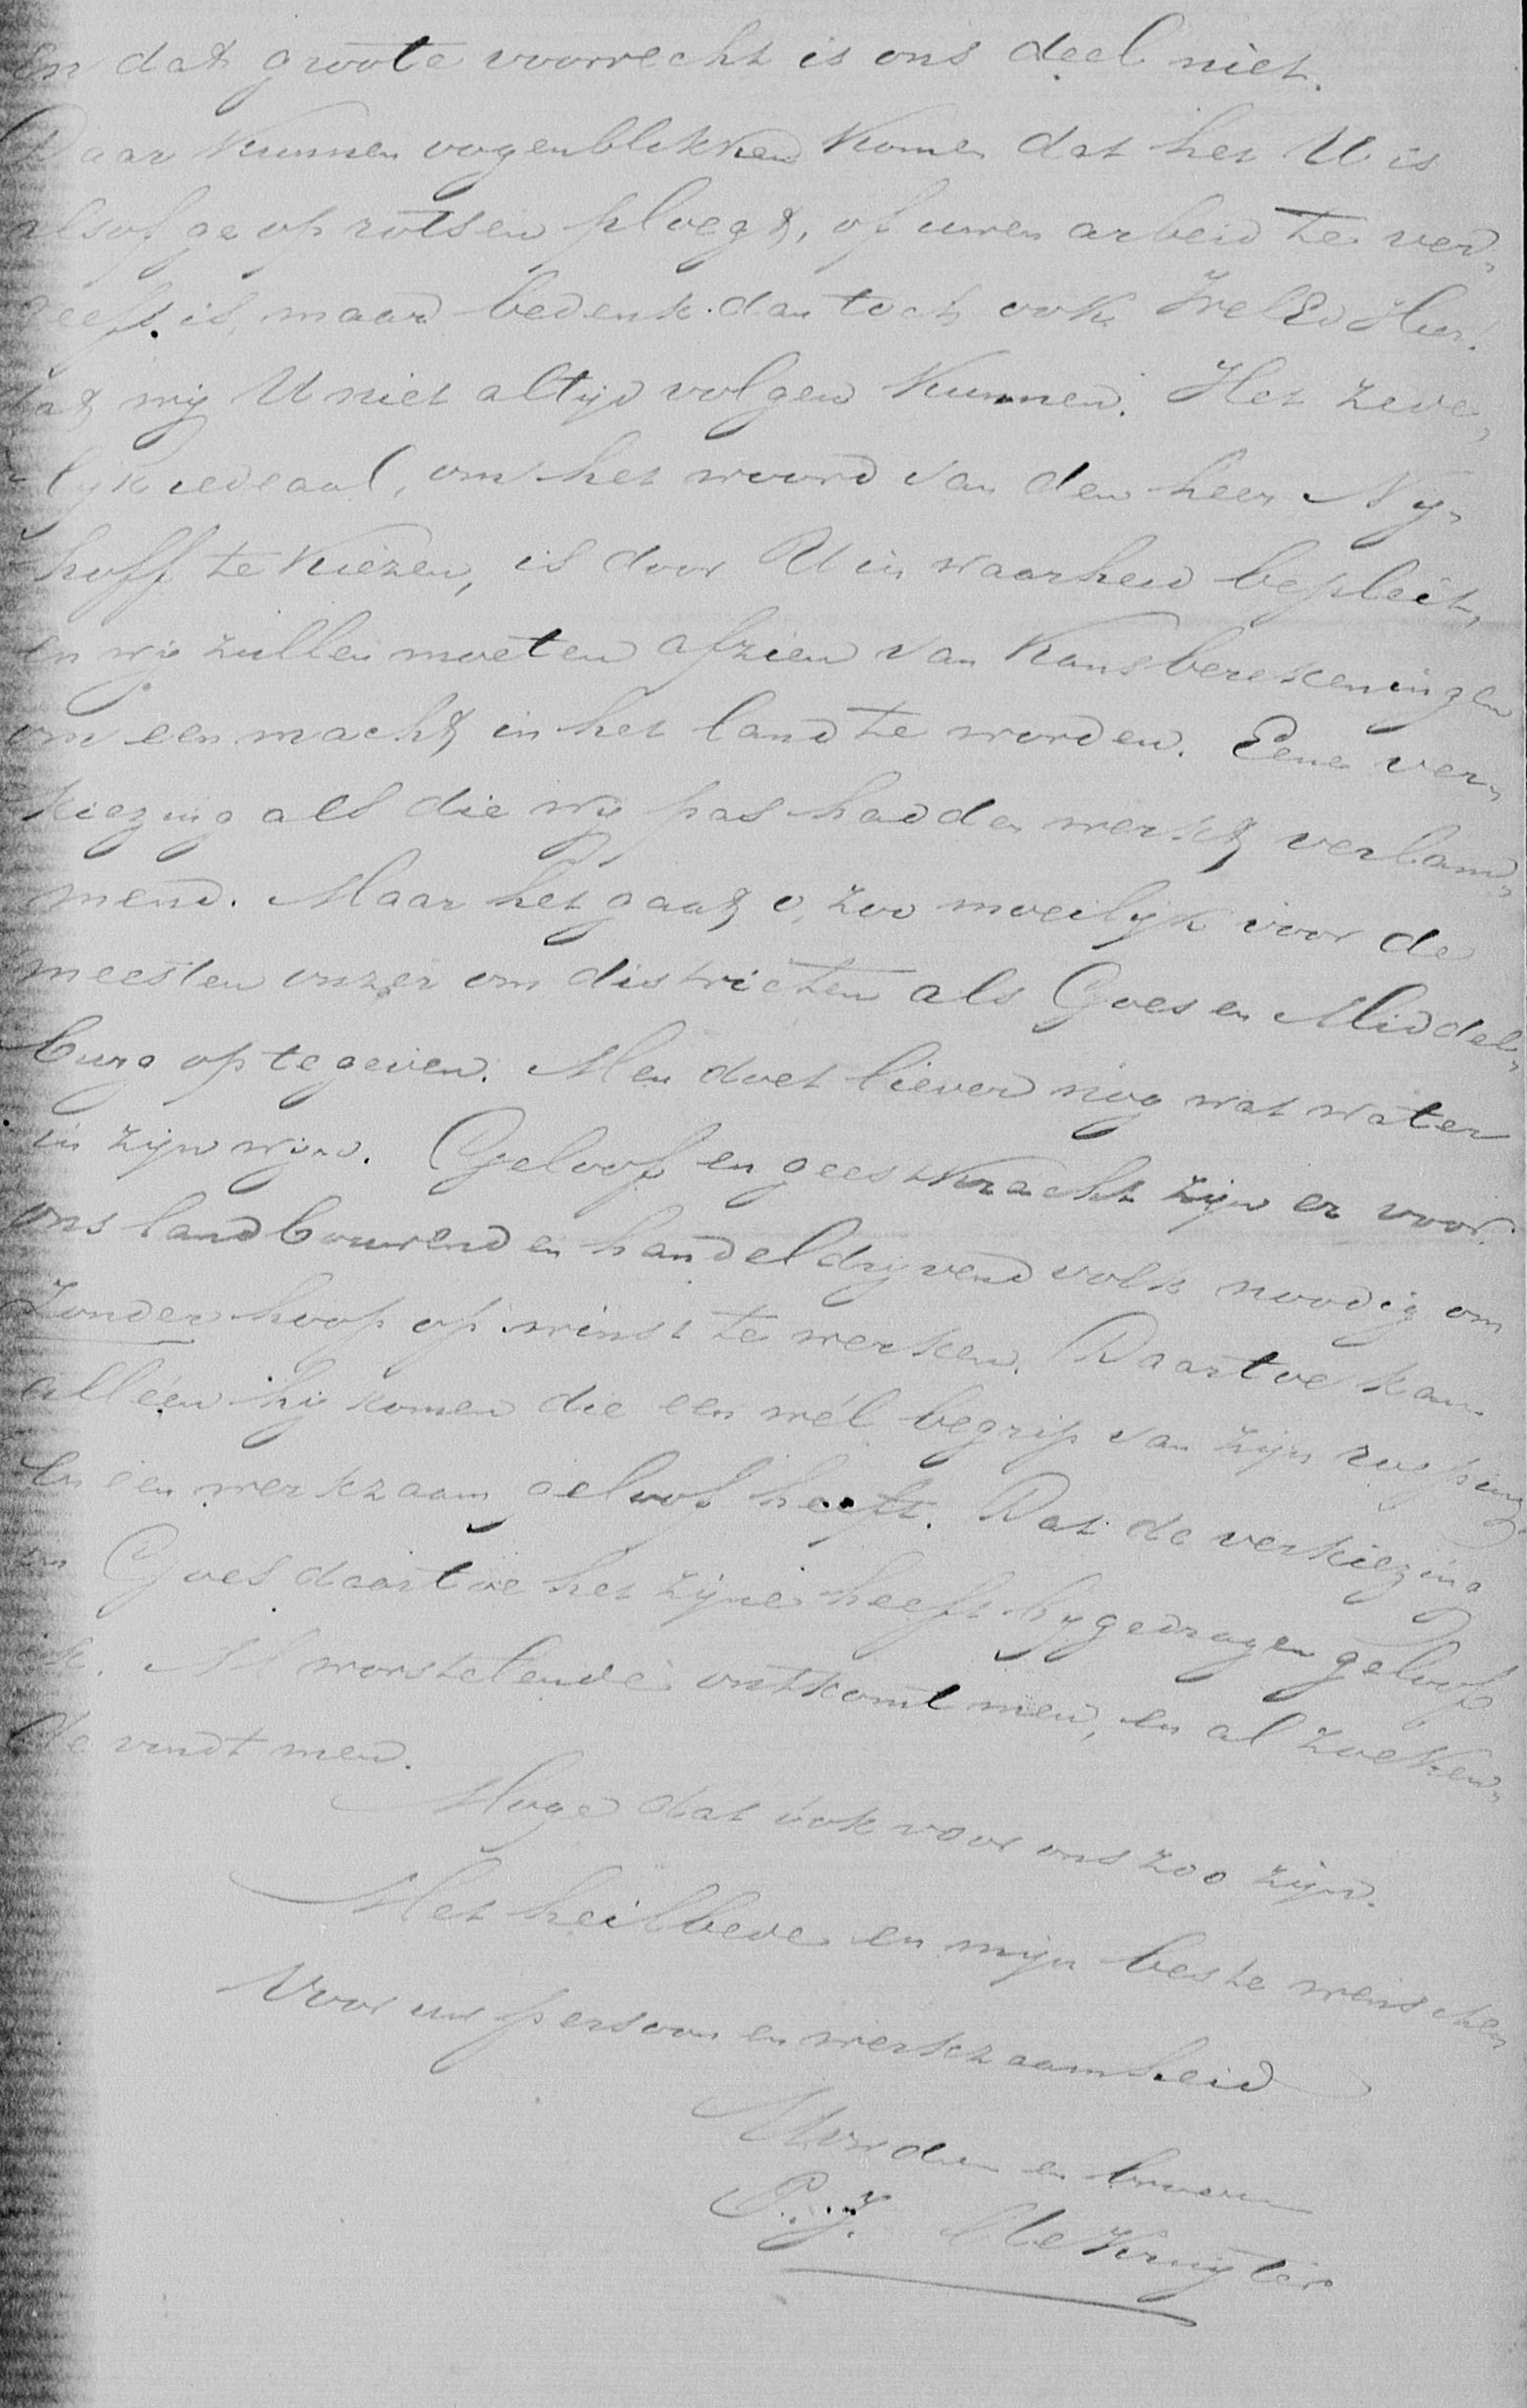 en dat groote voorrecht is ons deel niet.
Daar kunnen oogenblikken komen dat het U is
alsof ge op rotsen ploegt, of uwen arbeid te ver-
geefs is, maar bedenk dan toch ook WelEd Heer.
dat wij U niet altijd volgen kunnen. Het zede-
lijk ideaal, om het woord van den heer Ny-
hoff te kiezen, is door U in waarheid bepleit,
en wij zullen moeten afzien van kansberekeningen
om een macht in het land te worden. Eene ver-
kiezing als die wij pas hadden werkt verlam-
mend. Maar het gaat o, zoo moeilijk voor de
meesten onzer om districten als Goes en Middel-
burg op te geven. Men doet liever nog wat water
in zijn wijn. Geloof en geestkracht zijn er voor
ons landbouwend en handeldrijvend volk noodig om
zonder hoop op winst te werken. Daartoe kan
alléén hij komen die een wél begrip van zijn roeping
en een werkzaam geloof heeft. Dat de verkiezing
in Goes daartoe het zijne heeft bijgedragen geloof
ik. Al worstelende ontkomt men, en al zoeken-
de vindt men.
Moge dat ook voor ons zoo zijn.
Met heilbede en mijn beste wenschen
voor uw persoon en werkzaamheid
P. J.